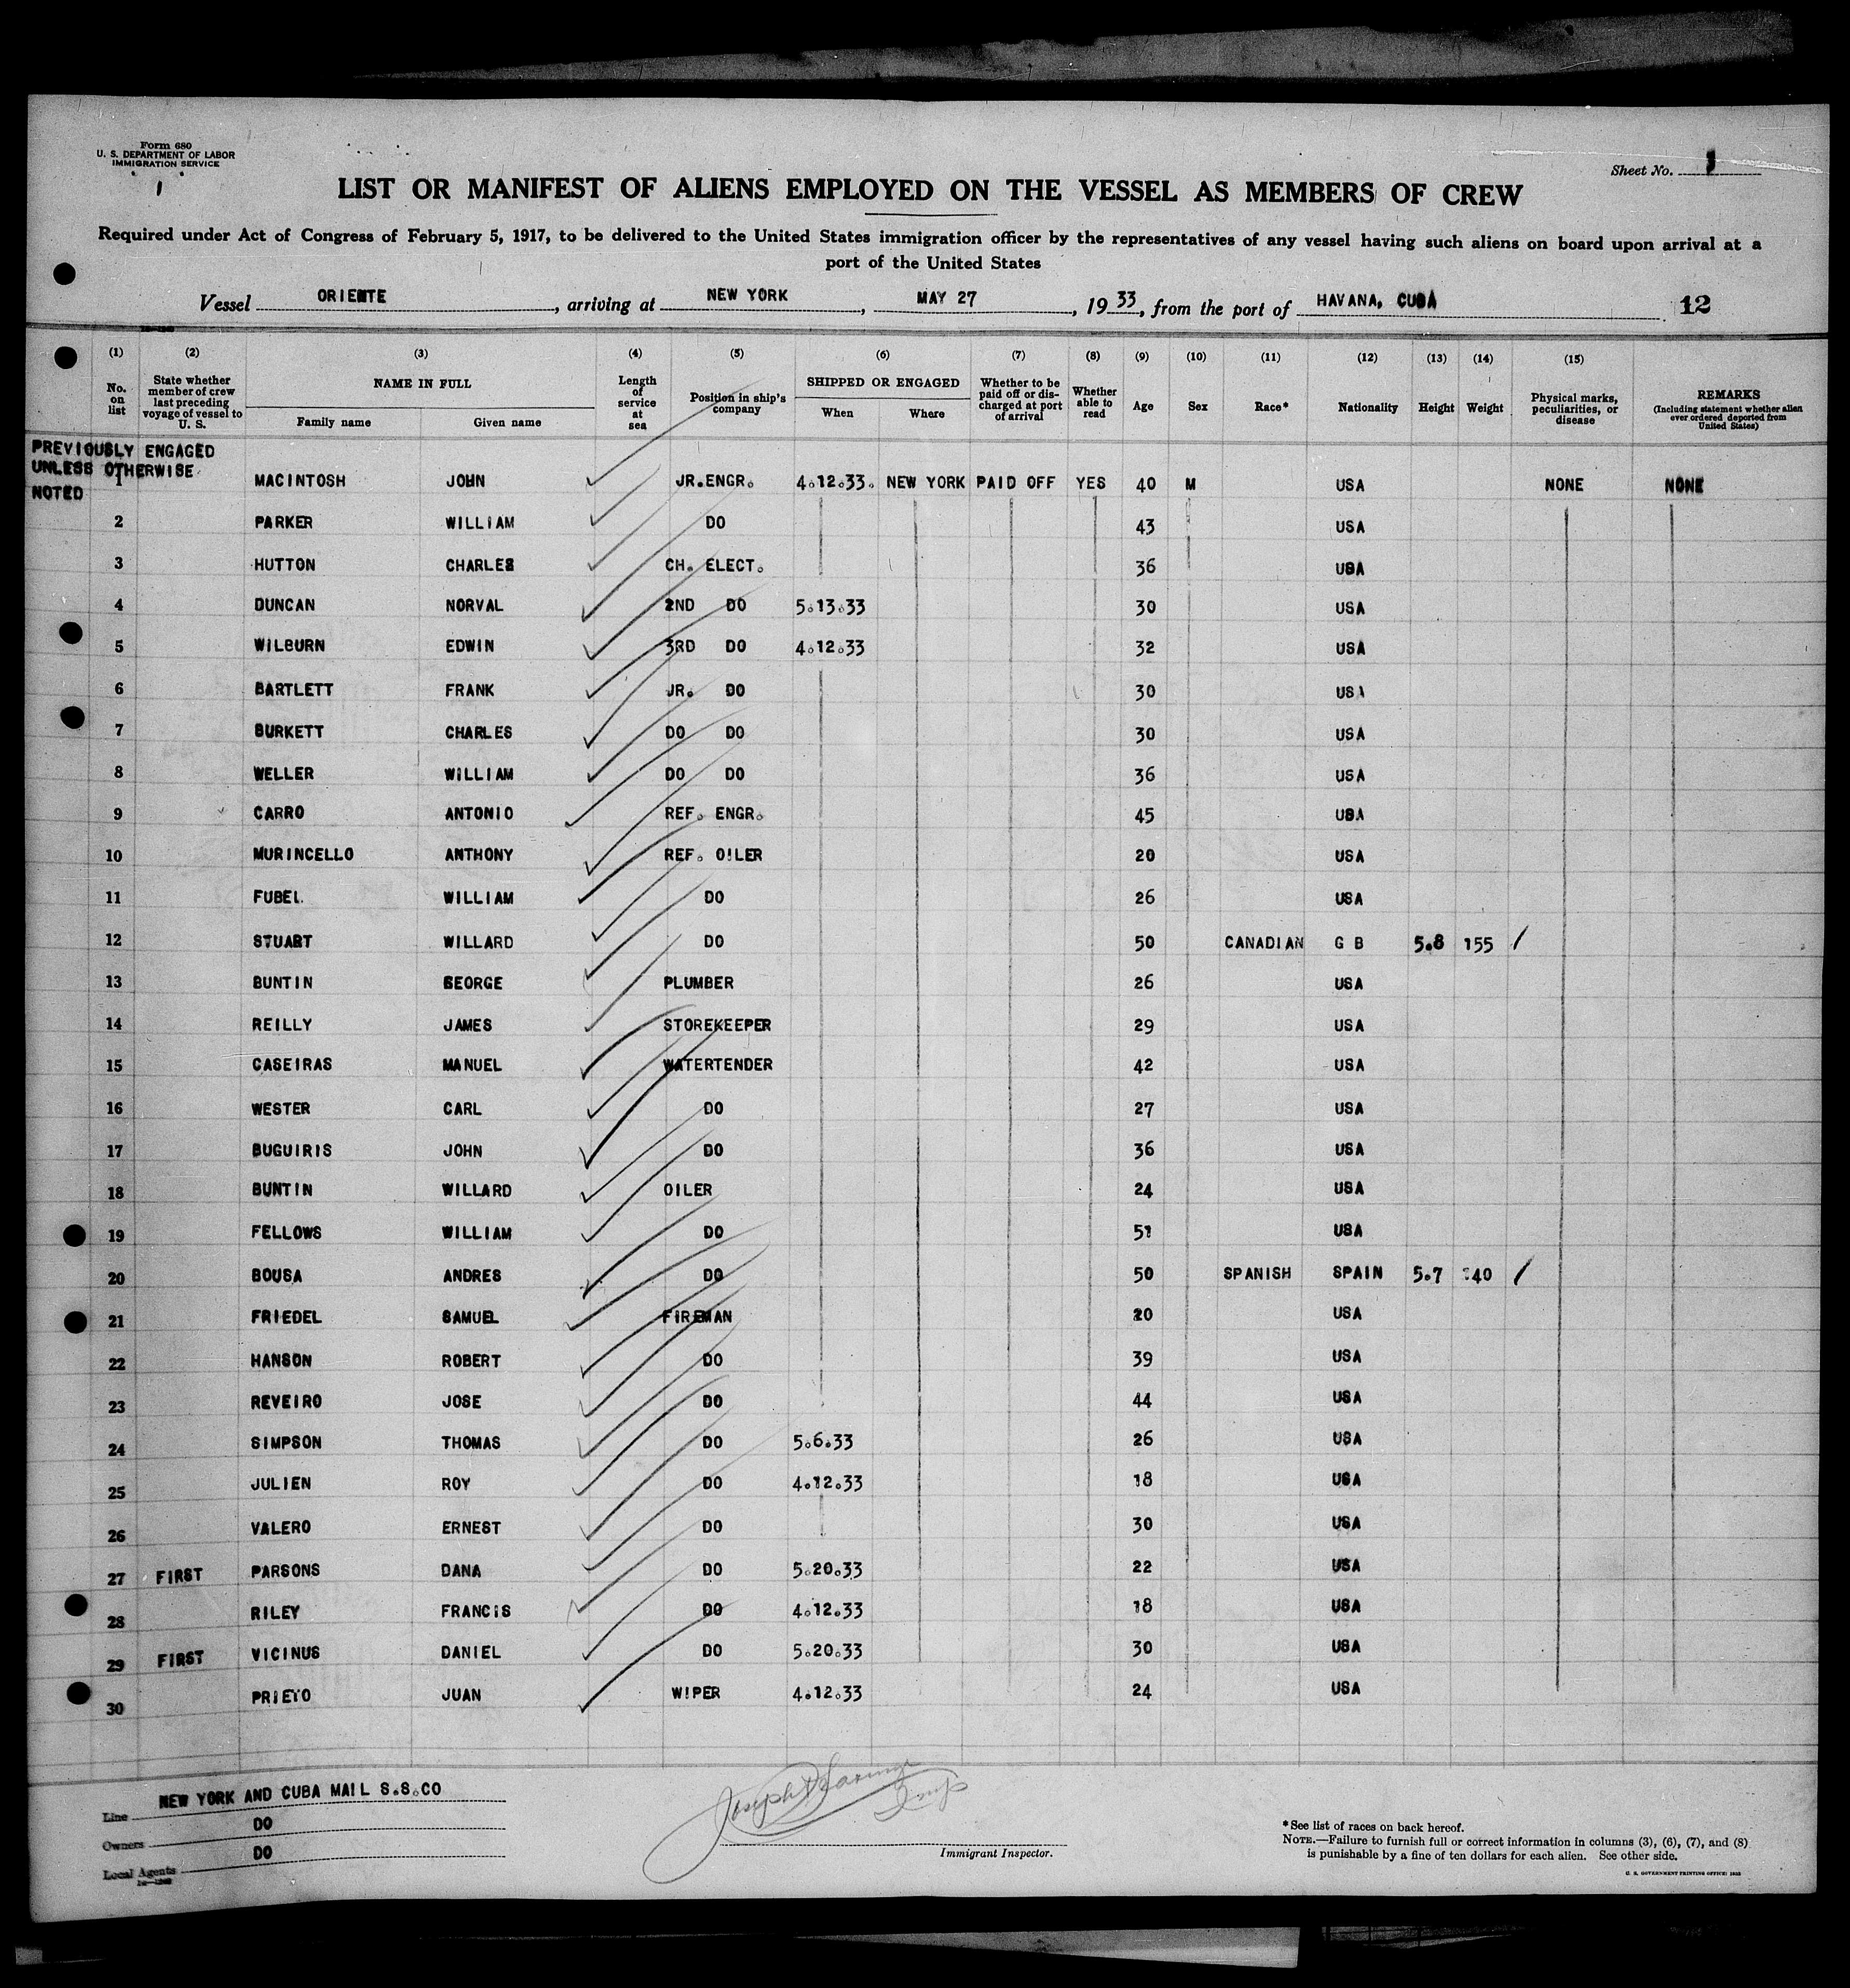 Form 680
U. S. DEPARTMENT OF LABOR
IMMIGRATION SERVICE
Sheet No. 1
LIST OR MANIFEST OF ALIENS EMPLOYED ON THE VESSEL AS MEMBERS OF CREW
Required under Act of Congress of February 5, 1917, to be delivered to the United States immigration officer by the representatives of any vessel having such aliens on board upon arrival at a
port of the United States
Vessel ORIENTE, arriving at NEW YORK, MAY 27, 1933, from the port of HAVANA, CUBA 12
(1) (2) (3) (4) (5) (6) (7) (8) (9) (10) (11) (12) (13) (14) (15)
No. on list State whether member of crew last preceding voyage of vessel to U. S. NAME IN FULL Family name Given name Length of service at sea Position in ship's company SHIPPED OR ENGAGED When Where Whether to be paid off or discharged at port of arrival Whether able to read Age Sex Race* Nationality Height Weight Physical marks, peculiarities, or disease REMARKS (Including statement whether alien ever ordered deported from United States)
PREVIOUSLY ENGAGED
UNLESS OTHERWISE
NOTED
1 MACINTOSH JOHN JR.ENGR. 4.12.33. NEW YORK PAID OFF YES 40 M USA NONE NONE
2 PARKER WILLIAM DO 43 USA
3 HUTTON CHARLES CH. ELECT. 36 USA
4 DUNCAN NORVAL 2ND DO 5.13.33 30 USA
5 WILBURN EDWIN 3RD DO 4.12.33 32 USA
6 BARTLETT FRANK JR. DO 30 USA
7 BURKETT CHARLES DO DO 30 USA
8 WELLER WILLIAM DO DO 36 USA
9 CARRO ANTONIO REF. ENGR. 45 USA
10 MURINCELLO ANTHONY REF. OILER 20 USA
11 FUBEL WILLIAM DO 26 USA
12 STUART WILLARD DO 50 CANADIAN G B 5.8 155
13 BUNTIN GEORGE PLUMBER 26 USA
14 REILLY JAMES STOREKEEPER 29 USA
15 CASEIRAS MANUEL WATERTENDER 42 USA
16 WESTER CARL DO 27 USA
17 BUGUIRIS JOHN DO 36 USA
18 BUNTIN WILLARD OILER 24 USA
19 FELLOWS WILLIAM DO 51 USA
20 BOUSA ANDRES DO 50 SPANISH SPAIN 5.7 140
21 FRIEDEL SAMUEL FIREMAN 20 USA
22 HANSON ROBERT DO 39 USA
23 REVEIRO JOSE DO 44 USA
24 SIMPSON THOMAS DO 5.6.33 26 USA
25 JULIEN ROY DO 4.12.33 18 USA
26 VALERO ERNEST DO 30 USA
27 FIRST PARSONS DANA DO 5.20.33 22 USA
28 RILEY FRANCIS DO 4.12.33 18 USA
29 FIRST VICINUS DANIEL DO 5.20.33 30 USA
30 PRIETO JUAN WIPER 4.12.33 24 USA
Line NEW YORK AND CUBA MAIL S.S.CO
Owners DO
Local Agents DO
Joseph
Immigrant Inspector.
*See list of races on back hereof.
NOTE.—Failure to furnish full or correct information in columns (3), (6), (7), and (8)
is punishable by a fine of ten dollars for each alien. See other side.
U. S. GOVERNMENT PRINTING OFFICE: